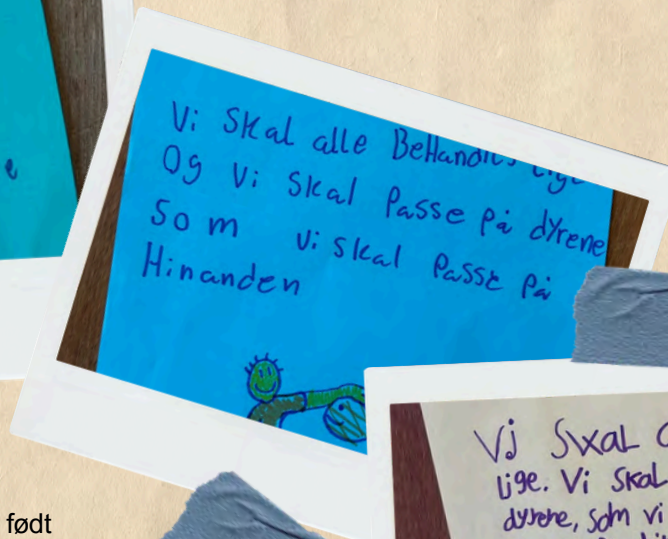 e
Vi Skal alle BeHandles lige
Og Vi Skal Passe På dyrene
Som Vi Skal Passe På
Hinanden
Vi Skal
lige. Vi Skal
dyrene, som vi
født